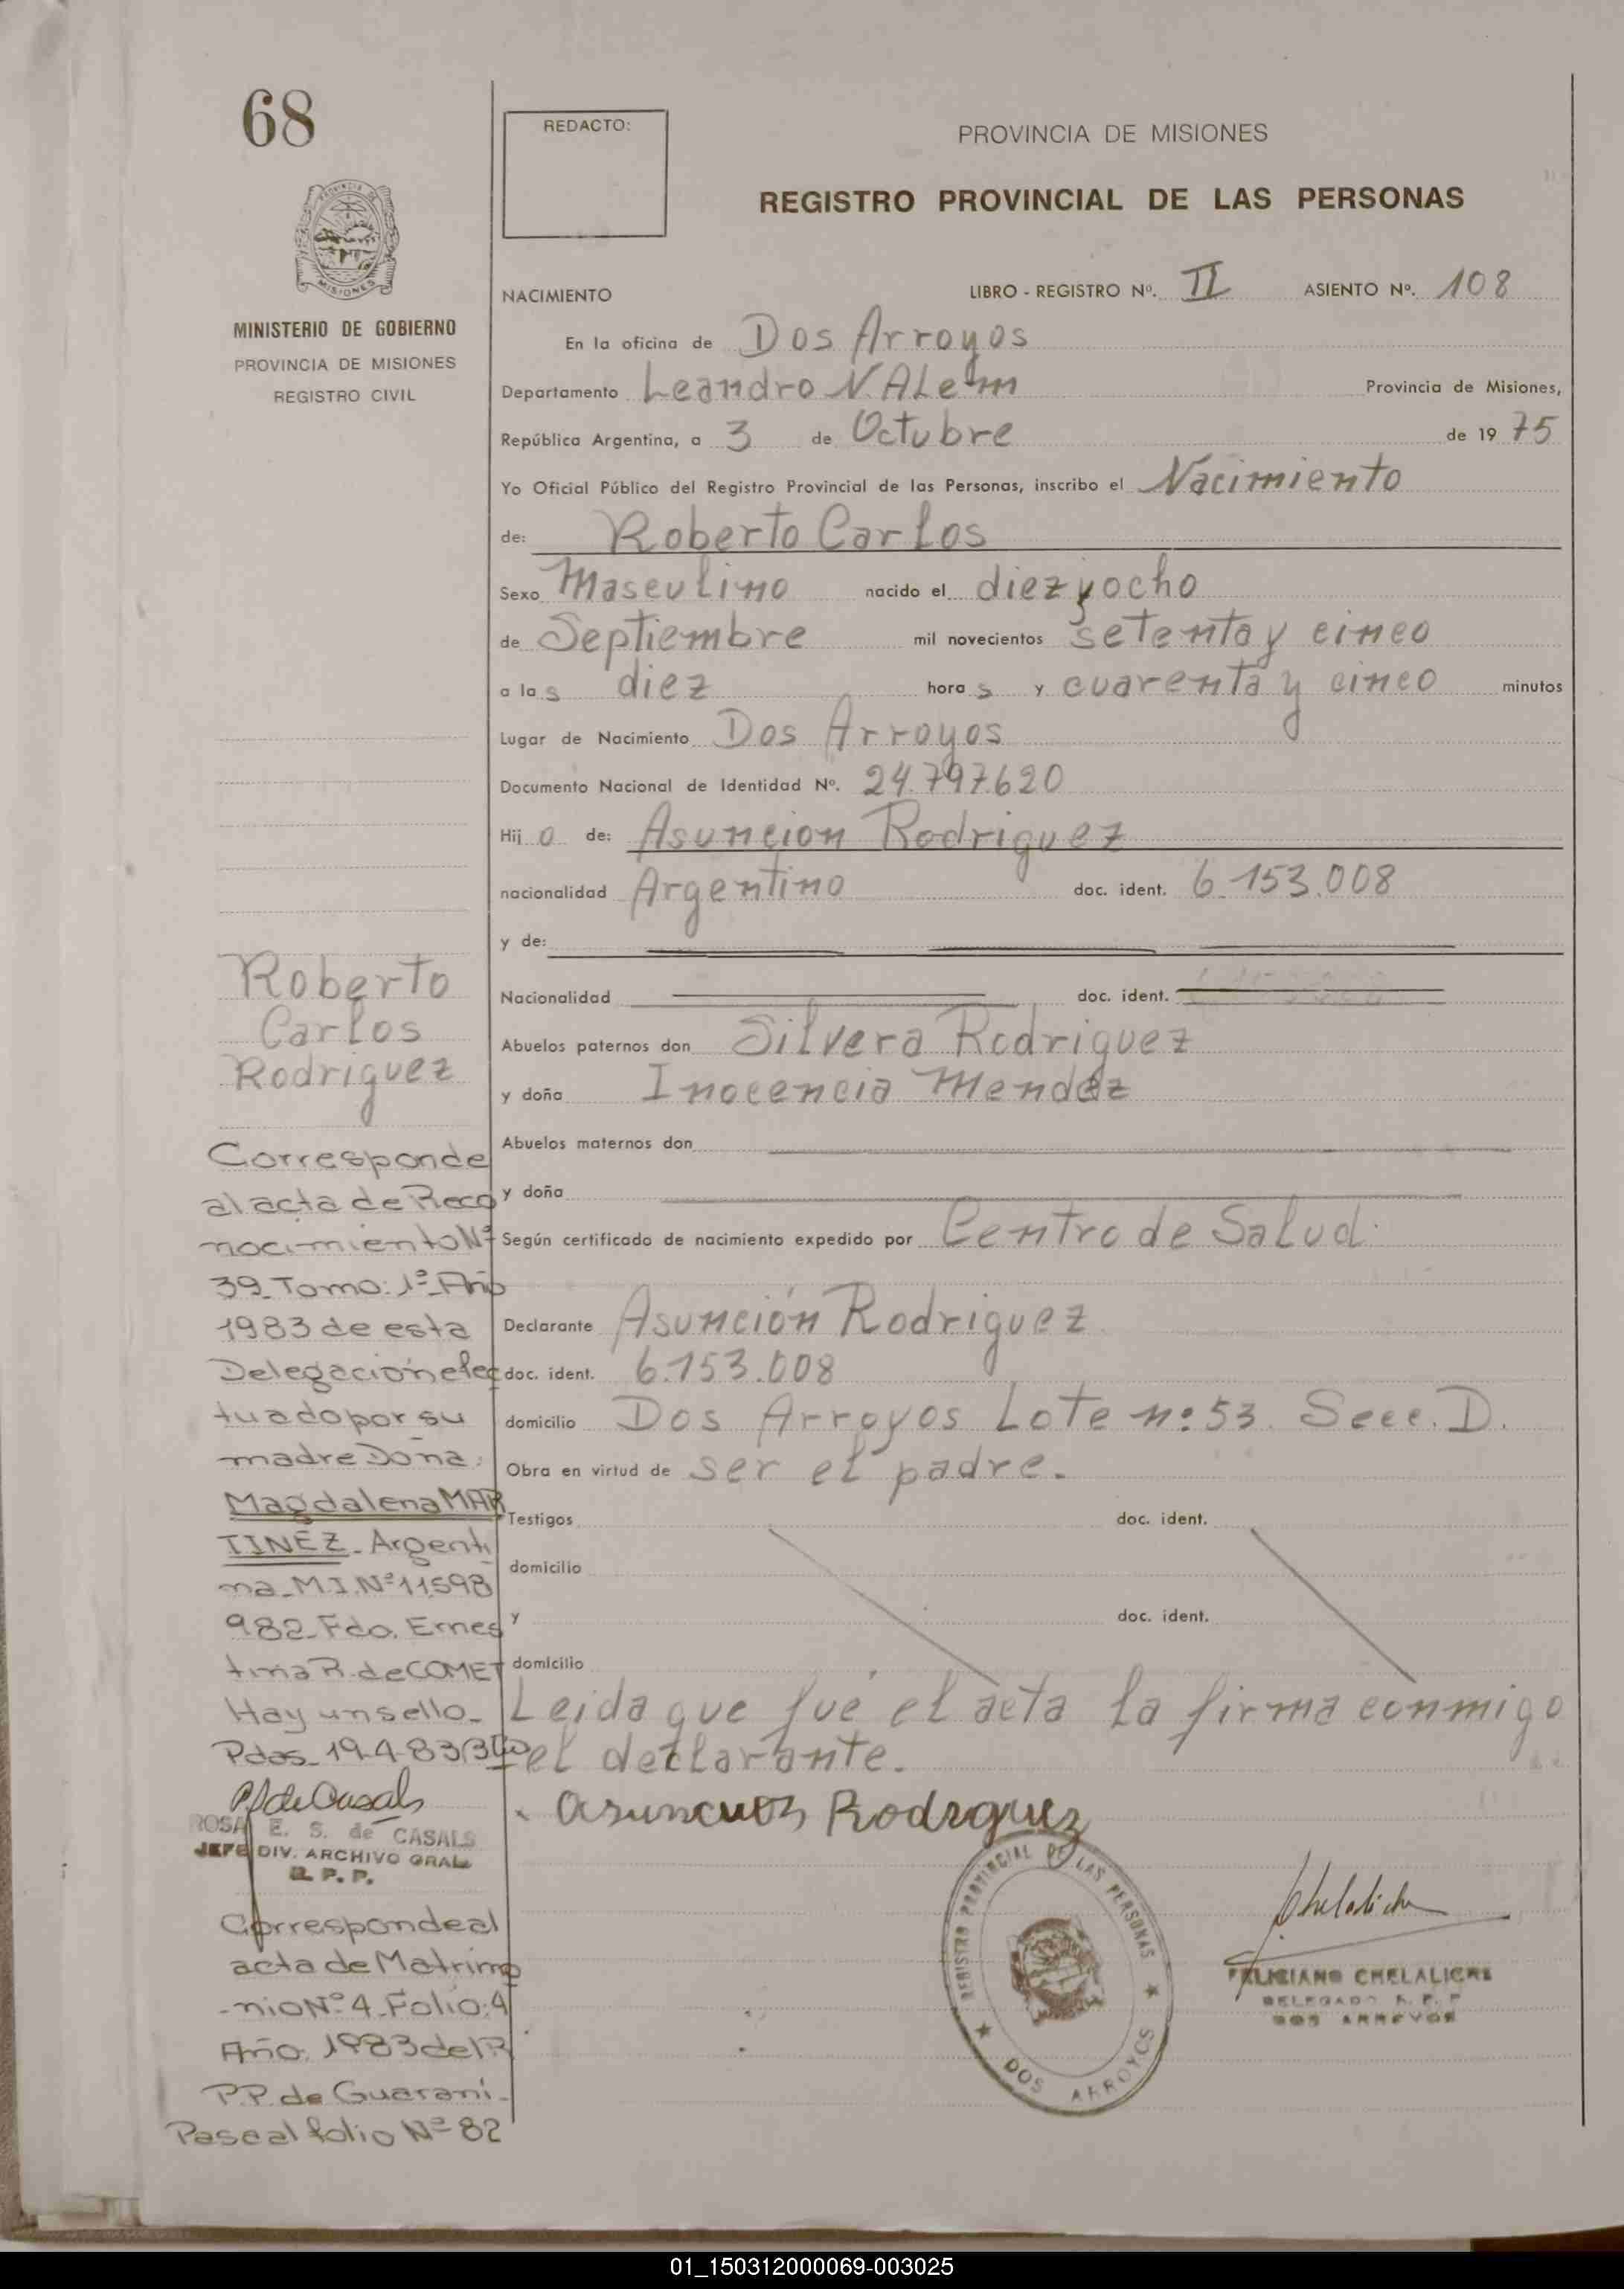 68
REDACTO:
PROVINCIA DE MISIONES
REGISTRO PROVINCIAL DE LAS PERSONAS
PROVINCIA DE
MISIONES
MINISTERIO DE GOBIERNO
PROVINCIA DE MISIONES
REGISTRO CIVIL
NACIMIENTO LIBRO - REGISTRO Nº. II ASIENTO Nº. 108
En la oficina de Dos Arroyos
Departamento Leandro N. ALem Provincia de Misiones,
República Argentina, a 3 de Octubre de 19 75
Yo Oficial Público del Registro Provincial de las Personas, inscribo el Nacimiento
de: Roberto Carlos
Sexo Masculino nacido el diez y ocho
de Septiembre mil novecientos setenta y cinco
a las diez horas y cuarenta y cinco minutos
Lugar de Nacimiento Dos Arroyos
Documento Nacional de Identidad Nº. 24.797.620
Hijo de: Asuncion Rodriguez
nacionalidad Argentino doc. ident. 6.153.008
y de:
Nacionalidad doc. ident.
Abuelos paternos don Silvera Rodriguez
y doña Inocencia Mendez
Abuelos maternos don
y doña
Según certificado de nacimiento expedido por Centro de Salud.
Declarante Asunción Rodriguez
doc. ident. 6.153.008
domicilio Dos Arroyos Lote nº 53. Secc. D.
Obra en virtud de ser el padre.
Testigos doc. ident.
domicilio
y doc. ident.
domicilio
Leida que fué el acta la firma conmigo
el declarante.
Asuncion Rodrguez
REGISTRO PROVINCIAL DE LAS PERSONAS
DOS ARROYOS
Chelaliche
FELICIANO CHELALICHE
DELEGADO R. P. P
DOS ARROYOS
Roberto
Carlos
Rodriguez
Corresponde
al acta de Reco
nocimiento Nº
39_Tomo: 1º_Año
1983 de esta
Delegación efec
tuado por su
madre Doña:
Magdalena MAR
TINEZ_Argenti
na_M.I.Nº 11.598
982_Fdo. Ernes
tina R. de COMET
Hay un sello_
Pdas_19-4-83
R S de Casals
ROSA E. S. de CASALS
JEFE DIV. ARCHIVO GRAL
R. P. P.
Corresponde al
acta de Matrimo
-nio Nº 4_Folio: 4
Año: 1983 del R
P.P. de Guaraní_
Pase al folio Nº 82
01_150312000069-003025